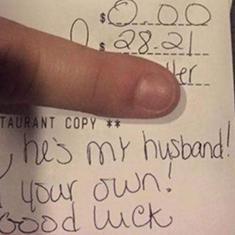 $ 0.00
$ 28.21
TAURANT COPY **
he's my husband!
your own!
Good luck